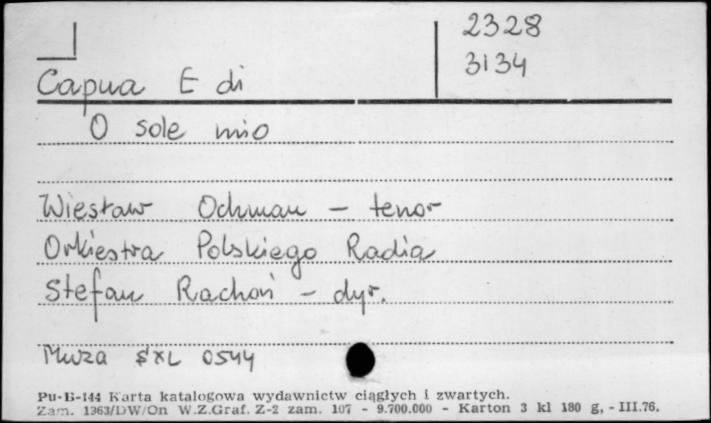 2328
3134
Capua E di
O sole mio
Wiesław Ochman - tenor
Orkiestra Polskiego Radia
Stefan Rachoń - dyr.
Muza SXL 0544
Pu-B-144 Karta katalogowa wydawnictw ciągłych i zwartych.
Zam. 1363/DW/On W.Z.Graf. Z-2 zam. 107 - 9.700.000 - Karton 3 kl 180 g, - III.76.